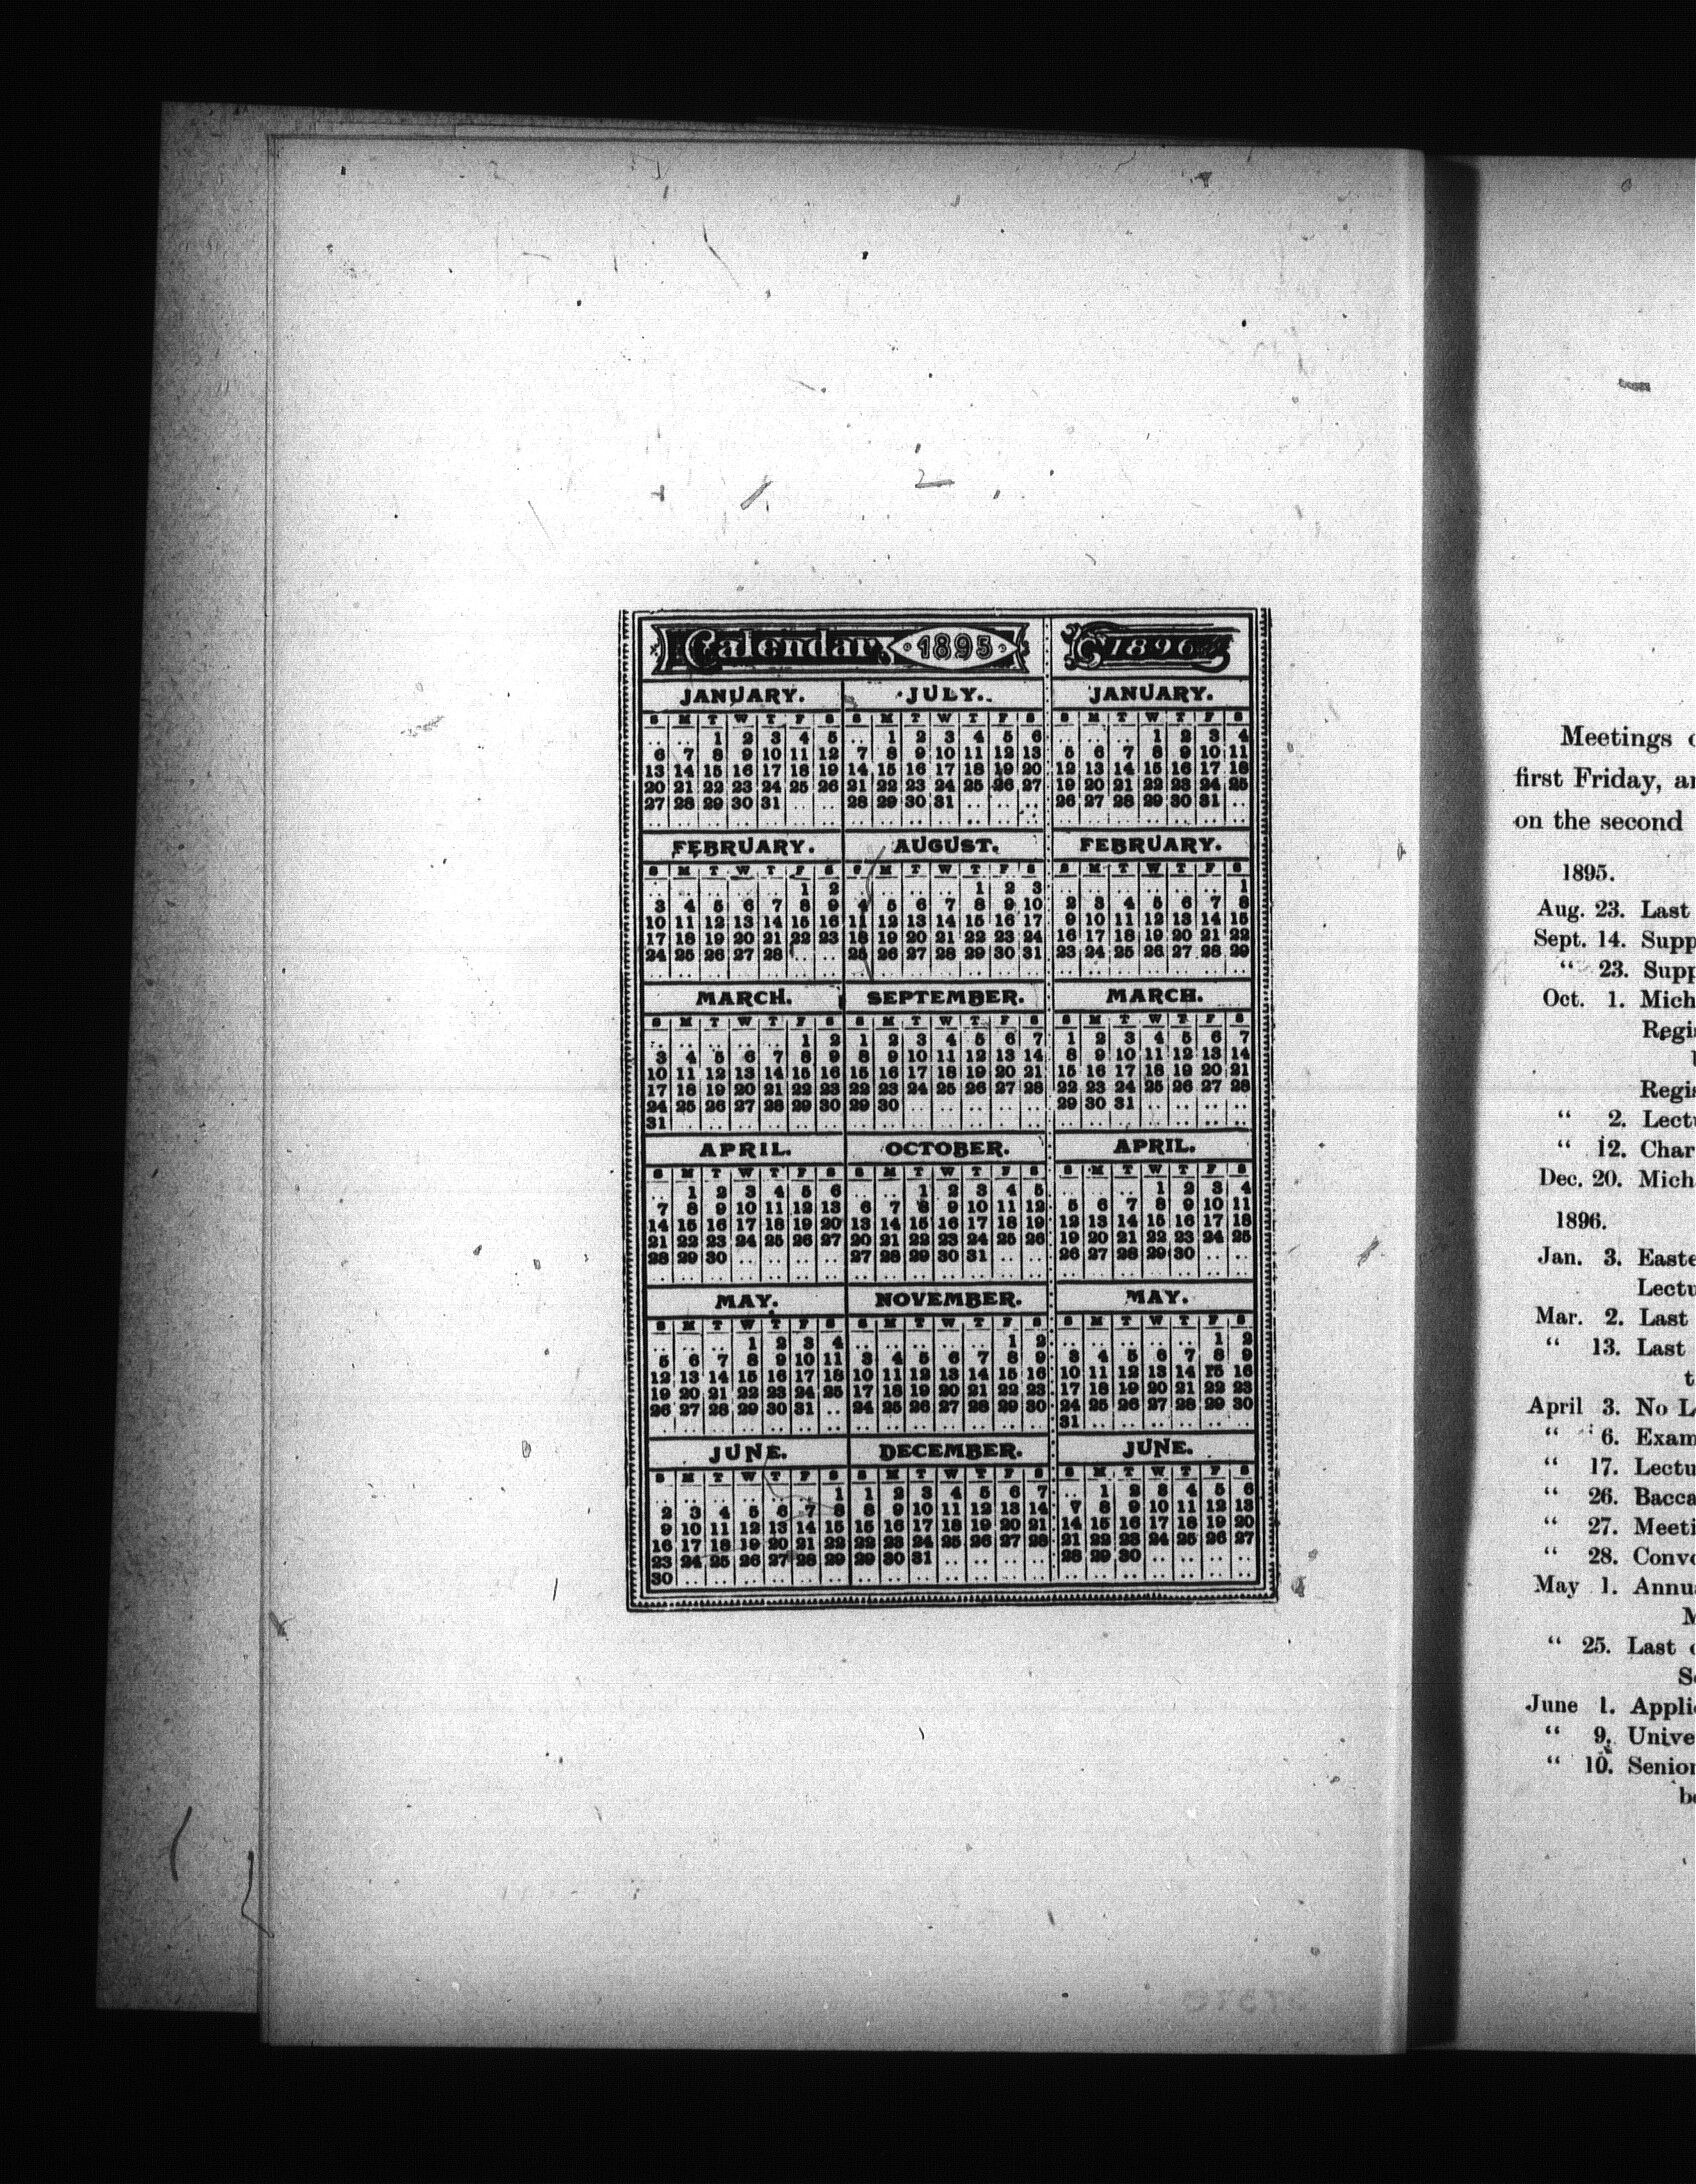 Calendar 1895
JANUARY.
S M T W T F S
1 2 3 4 5
6 7 8 9 10 11 12
13 14 15 16 17 18 19
20 21 22 23 24 25 26
27 28 29 30 31
FEBRUARY.
S M T W T F S
1 2
3 4 5 6 7 8 9
10 11 12 13 14 15 16
17 18 19 20 21 22 23
24 25 26 27 28
MARCH.
S M T W T F S
1 2
3 4 5 6 7 8 9
10 11 12 13 14 15 16
17 18 19 20 21 22 23
24 25 26 27 28 29 30
31
APRIL.
S M T W T F S
1 2 3 4 5 6
7 8 9 10 11 12 13
14 15 16 17 18 19 20
21 22 23 24 25 26 27
28 29 30
MAY.
S M T W T F S
1 2 3 4
5 6 7 8 9 10 11
12 13 14 15 16 17 18
19 20 21 22 23 24 25
26 27 28 29 30 31
JUNE.
S M T W T F S
1
2 3 4 5 6 7 8
9 10 11 12 13 14 15
16 17 18 19 20 21 22
23 24 25 26 27 28 29
30
JULY.
S M T W T F S
1 2 3 4 5 6
7 8 9 10 11 12 13
14 15 16 17 18 19 20
21 22 23 24 25 26 27
28 29 30 31
AUGUST.
S M T W T F S
1 2 3
4 5 6 7 8 9 10
11 12 13 14 15 16 17
18 19 20 21 22 23 24
25 26 27 28 29 30 31
SEPTEMBER.
S M T W T F S
1 2 3 4 5 6 7
8 9 10 11 12 13 14
15 16 17 18 19 20 21
22 23 24 25 26 27 28
29 30
OCTOBER.
S M T W T F S
1 2 3 4 5
6 7 8 9 10 11 12
13 14 15 16 17 18 19
20 21 22 23 24 25 26
27 28 29 30 31
NOVEMBER.
S M T W T F S
1 2
3 4 5 6 7 8 9
10 11 12 13 14 15 16
17 18 19 20 21 22 23
24 25 26 27 28 29 30
DECEMBER.
S M T W T F S
1 2 3 4 5 6 7
8 9 10 11 12 13 14
15 16 17 18 19 20 21
22 23 24 25 26 27 28
29 30 31
1896
JANUARY.
S M T W T F S
1 2 3 4
5 6 7 8 9 10 11
12 13 14 15 16 17 18
19 20 21 22 23 24 25
26 27 28 29 30 31
FEBRUARY.
S M T W T F S
1
2 3 4 5 6 7 8
9 10 11 12 13 14 15
16 17 18 19 20 21 22
23 24 25 26 27 28 29
MARCH.
S M T W T F S
1 2 3 4 5 6 7
8 9 10 11 12 13 14
15 16 17 18 19 20 21
22 23 24 25 26 27 28
29 30 31
APRIL.
S M T W T F S
1 2 3 4
5 6 7 8 9 10 11
12 13 14 15 16 17 18
19 20 21 22 23 24 25
26 27 28 29 30
MAY.
S M T W T F S
1 2
3 4 5 6 7 8 9
10 11 12 13 14 15 16
17 18 19 20 21 22 23
24 25 26 27 28 29 30
31
JUNE.
S M T W T F S
1 2 3 4 5 6
7 8 9 10 11 12 13
14 15 16 17 18 19 20
21 22 23 24 25 26 27
28 29 30
Meetings
first Friday,
on the second
1895.
Aug. 23. Last
Sept. 14. Supp
“ 23. Supp
Oct. 1. Mich
Regis
Regis
“ 2. Lectu
“ 12. Char
Dec. 20. Mich
1896.
Jan. 3. Easte
Lectu
Mar. 2. Last
“ 13. Last
t
April 3. No L
“ 6. Exam
“ 17. Lectu
“ 26. Bacca
“ 27. Meeti
“ 28. Convo
May 1. Annua
M
“ 25. Last
June 1. Applic
“ 9. Unive
“ 10. Senior
be